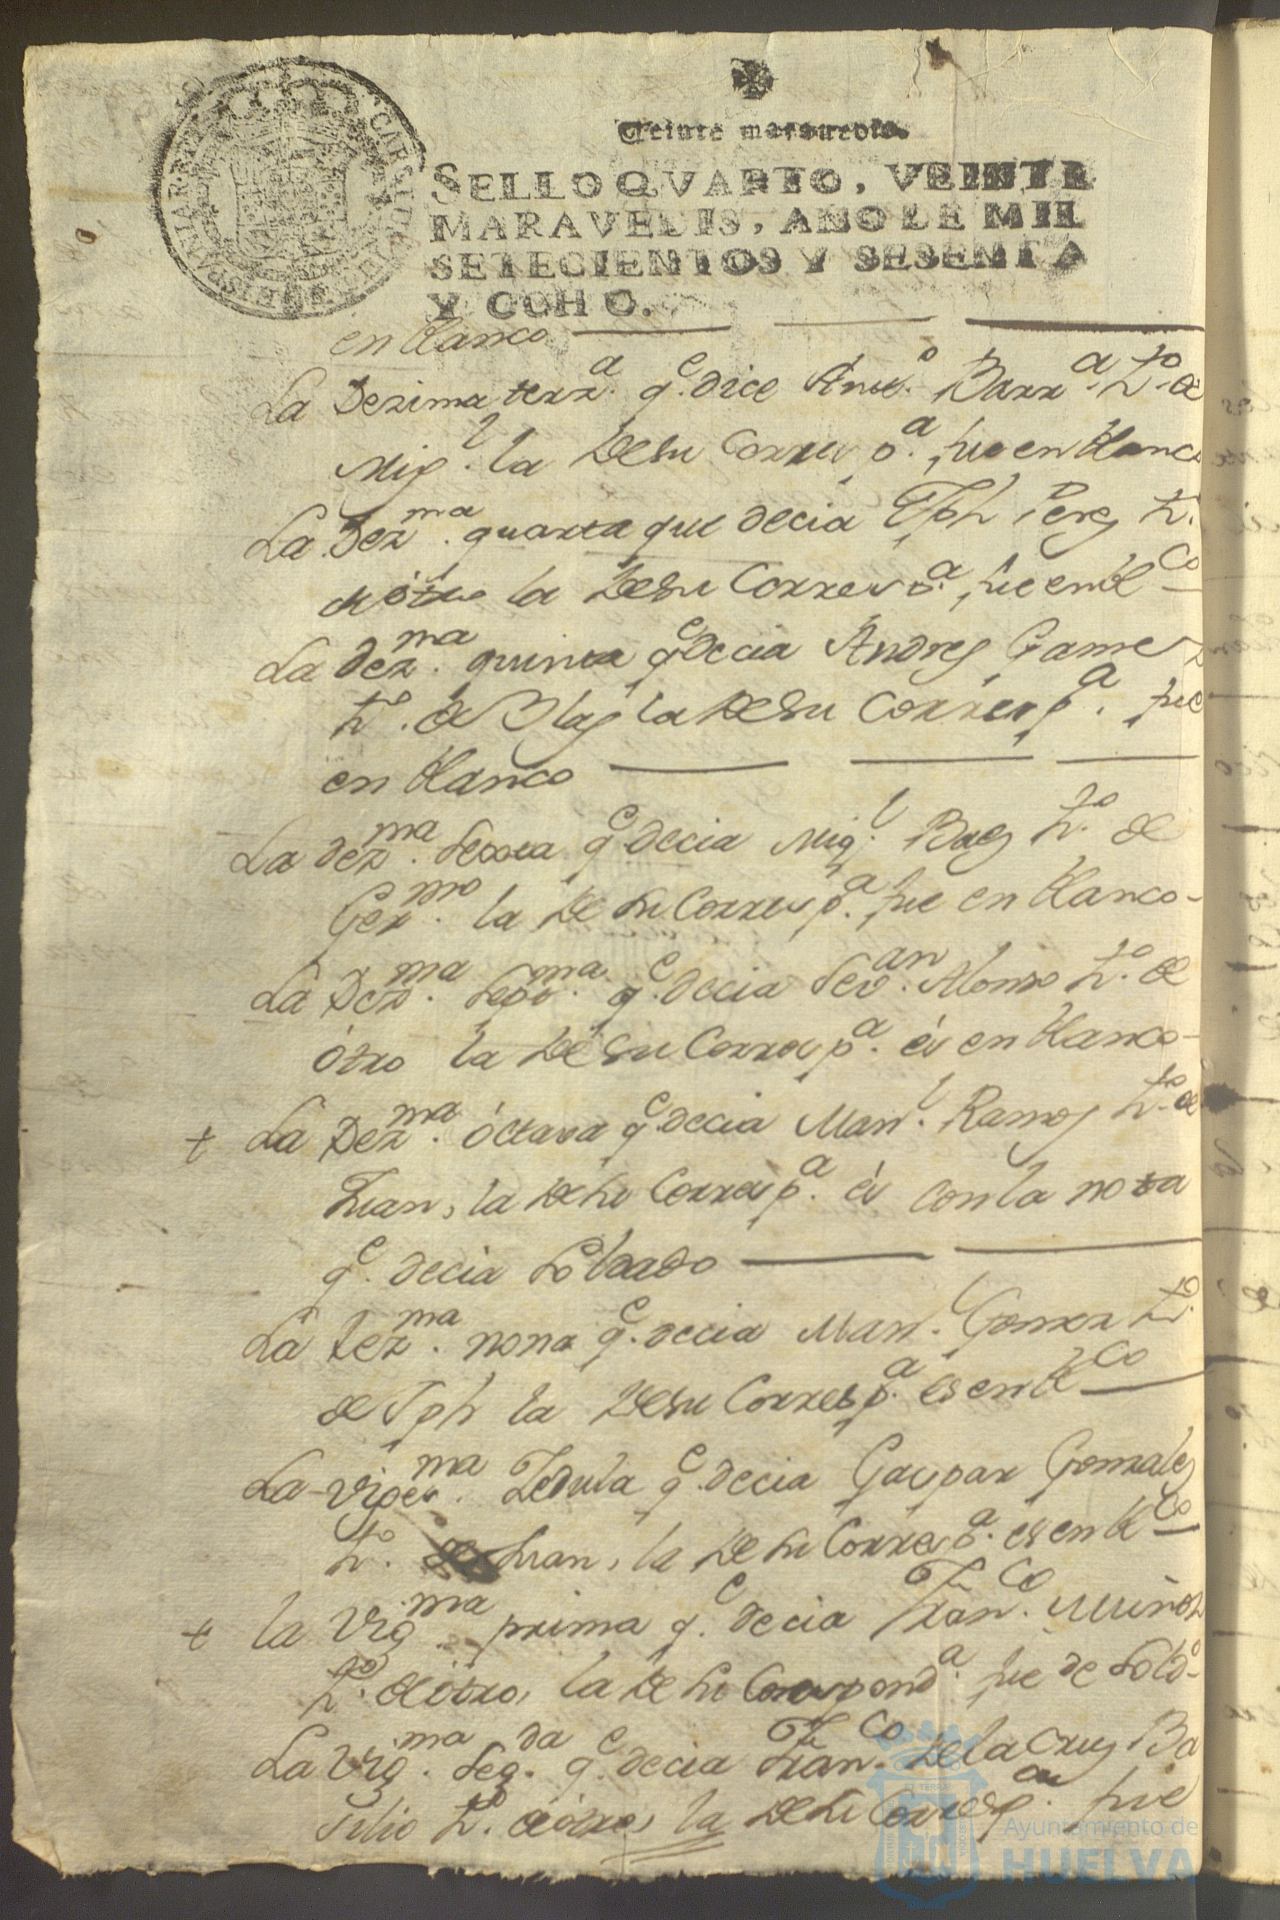 Veinte maravedis.
SELLO QVARTO, VEINTE
MARAVEDIS, AÑO DE MIL
SETECIENTOS Y SESENTA
Y OCHO.
en blanco
La Dezima terz.ª q.e dice Ant.º Barr.ª h.º de
Mig.l la de su Corresp.ª fue en blanco
La Dez.ma quarta que decia Jph Perez h.º
de otro la de su Corresp.ª fue en bl.co
La dez.ma quinta q.e decia Andres Gamez
h.º de Blas la de su Corresp.ª fue
en blanco
La dez.ma sexta q.e decia Mig.l Baez h.º de
Ger.mo la de su Corresp.ª fue en blanco
La Dez.ma sept.ma q.e decia Sev.an Alonso h.º de
otro la de su Corresp.ª es en blanco
+ La Dez.ma octava q.e decia Man.l Ramos h.º de
Juan, la de su Corresp.ª es con la nota
q.e decia Soldado
La Dez.ma nona q.e decia Man.l Gomez h.º
de Jph la de su Corresp.ª es en bl.co
La viges.ma Zedula q.e decia Gaspar Gonzalez
h.º de Juan, la de su Corresp.ª es en bl.co
+ la Vig.ma prima q.e decia Fran.co Muñoz
h.º de otro, la de su Correspond.ª fue de Sold.º
La Vig.ma Seg.da q.e decia Fran.co de la Cruz Ba
silio h.º de otro, la de su Corresp.ª fue
Ayuntamiento de
HUELVA